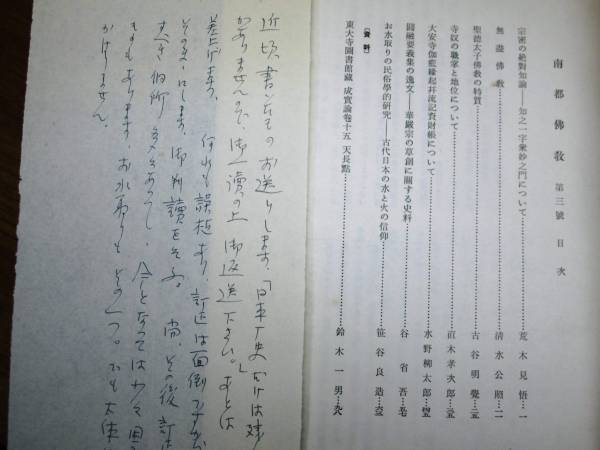 南都佛教 第三號 目次
宗密の絶對知論——知之一字衆妙之門について……荒木見悟…一
無盡佛教……清水公照…二
聖徳太子佛教の特質……古谷明覺…三
寺奴の職掌と地位について……直木孝次郎…
大安寺伽藍縁起并流記資財帳について……水野柳太郎…
圓融要義集の逸文——華嚴宗の草創に關する史料……谷省吾…
お水取りの民俗學的研究——古代日本の水と火の信仰……笹谷良造…
【資料】
東大寺圖書館藏 成實論卷十五 天長點……鈴木一男…
近頃書いたものお送りします、「日本
かありませんので、御一讀の上 御返送下さい。」あとは
差上げます。何れも誤植あり、訂正は面倒ですから
そのまゝにします。御判讀を乞ふ。尚、その後 訂正
すべき個所 多々あつて、今となつては
ものもあります。お水取りもその一つ。でも大体は
かはりません。